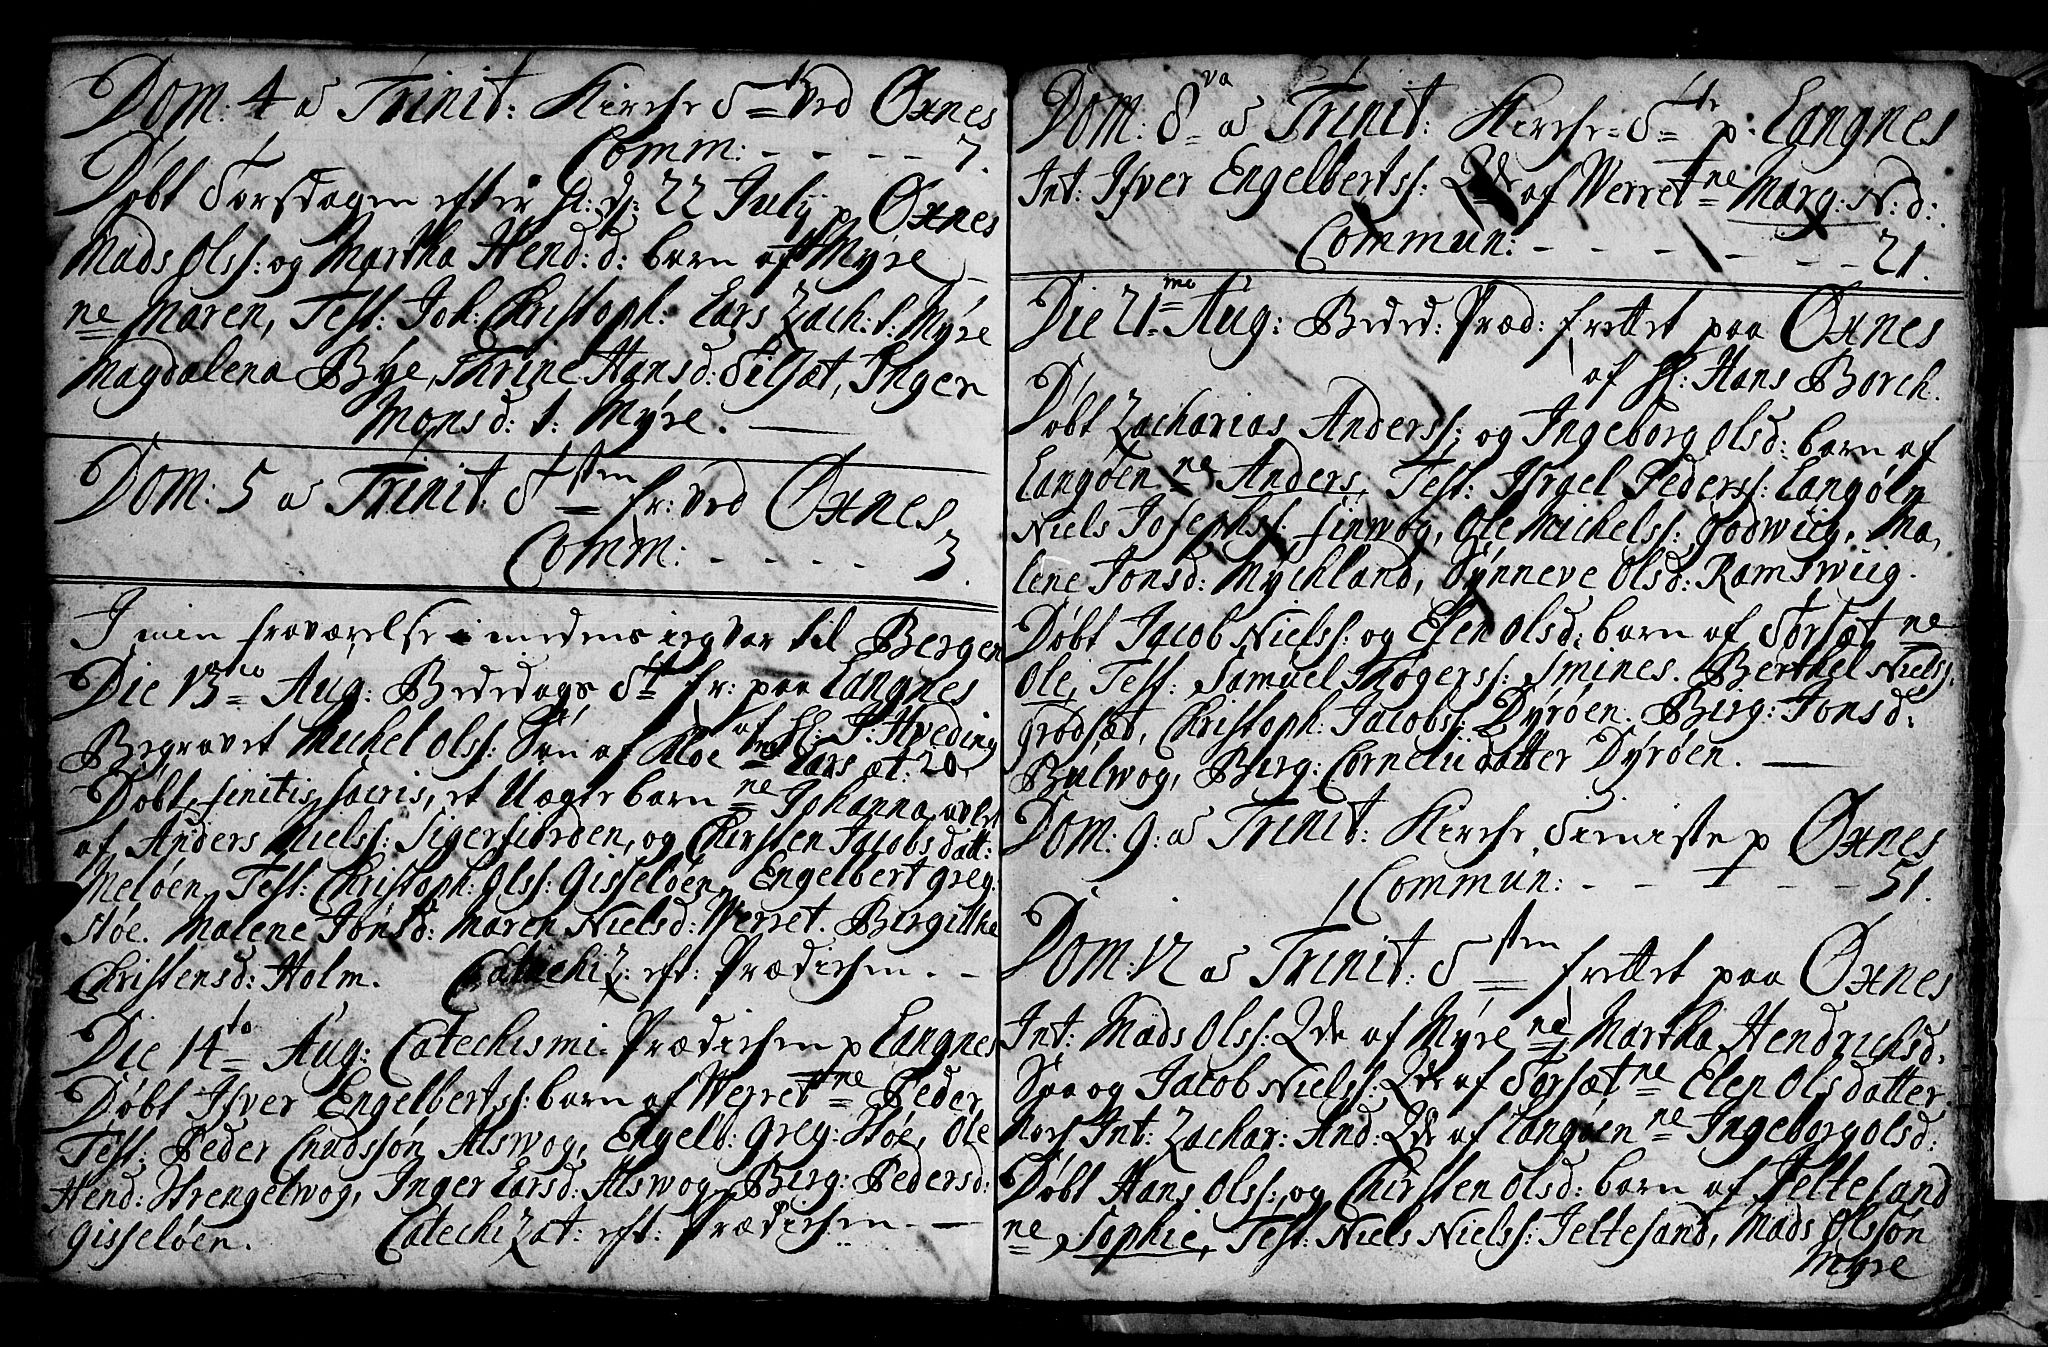 Dom: 4 à Trinit: Kirche S= ved Øxnes
Comm: - - - - 7.
Døbt Torsdagen efter H: d: 22 July p Øxnes
Mads Olss: og Martha Hend: d: barn af Myre
ne Maren, Test: Joh: Christoph: Lars Zach: s: Myre
Magdalena Bye, Thrine Hansd: Tilsæt, Inger
Monsd: s: Myre.
Dom: 5 à Trinit: Sten fr: ved Øxnes
Comm: - - - - 3.
I min fraværelse imedens ieg var til Bergen
Die 13no Aug: Bededags St fr: paa Langnes
af H: J: Hveding
Begravet Michel Olss: Søn af Kloe ne Lars æt: 20.
Døbt, finitis sacris, et Uægte barn ne Johanna, avlet
af Anders Niels: Sigerfiorden, og Chirsten Jacobs datt:
Meløen, Test: Christoph: Olss: Gisseløen, Engelbert Greg:
Støe. Malene Jonsd: Maren Nielsd: Werret. Birgitthe
Christensd: Holm. Catechiz: eft: Prædichen. -
Die 14to Aug: Catechismi Prædichen p Langnes
Døbt Ifver Engelbertss: barn af Werret ne Peder
Test: Peder Chudssøn Alswog, Engelb: Greg: Støe, Ole
Hend: Strengelwog, Inger Larsd: Alswog Birg: Pedersd:
Gisseløen. Catechizat: eft: Prædichen - -
Dom: 8va à Trinit: Kirche= S= p. Langnes
Int: Ifver Engelbertss: Qde af Werret ne Marg: N: d:
Commun: - - - - - - 21.
Die 21mo Aug: Beded: Præd: frettet paa Øxnes
af H: Hans Borch.
Døbt Zacharias Anderss: og Ingeborg Olsd: barn af
Langøen ne Anders, Test: Israel Pederss: Langøen
Niels Josephss: Finwog, Ole Michelss: Godwiig, Ma,
lene Jonsd: Mychland, Synneve Olsd: Ramswiig.
Døbt Jacob Nielss: og Elen Olsd: barn af Sørsæt ne
Ole, Test: Samuel Thogerss: Smines. Berthel Nielss,
Grødsæt, Christoph: Jacobss: Dyrøen. Birg: Jonsd:
Bulwog, Birg: Cornelii datter Dyrøen.
Dom: 9: à Trinit: Kirche Tieniste p Øxnes
Commun: - - - - - 51.
Dom: 12 à Trinit: Sten frettet paa Øxnes
Int: Mads Olss: Qde af Myre ne Martha Hendrichsd:
Saa og Jacob Nielss: Qde af Sørsæt ne Elen Olsdatter
Int: Zachar: And: Qde af Langøen ne Ingeborg Olsd:
Døbt Hans Olss: og Chirsten Olsd: barn af Jeltesand
ne Sophie, Test: Niels Nielss: Jeltesand, Mads Olssøn
Myre